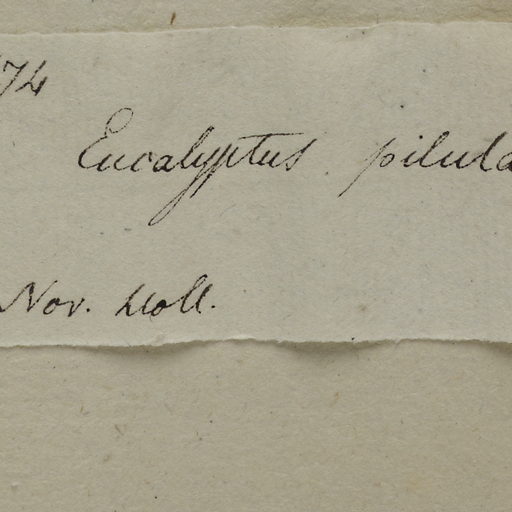 74
Eucalyptus pilula
Nov. Holl.